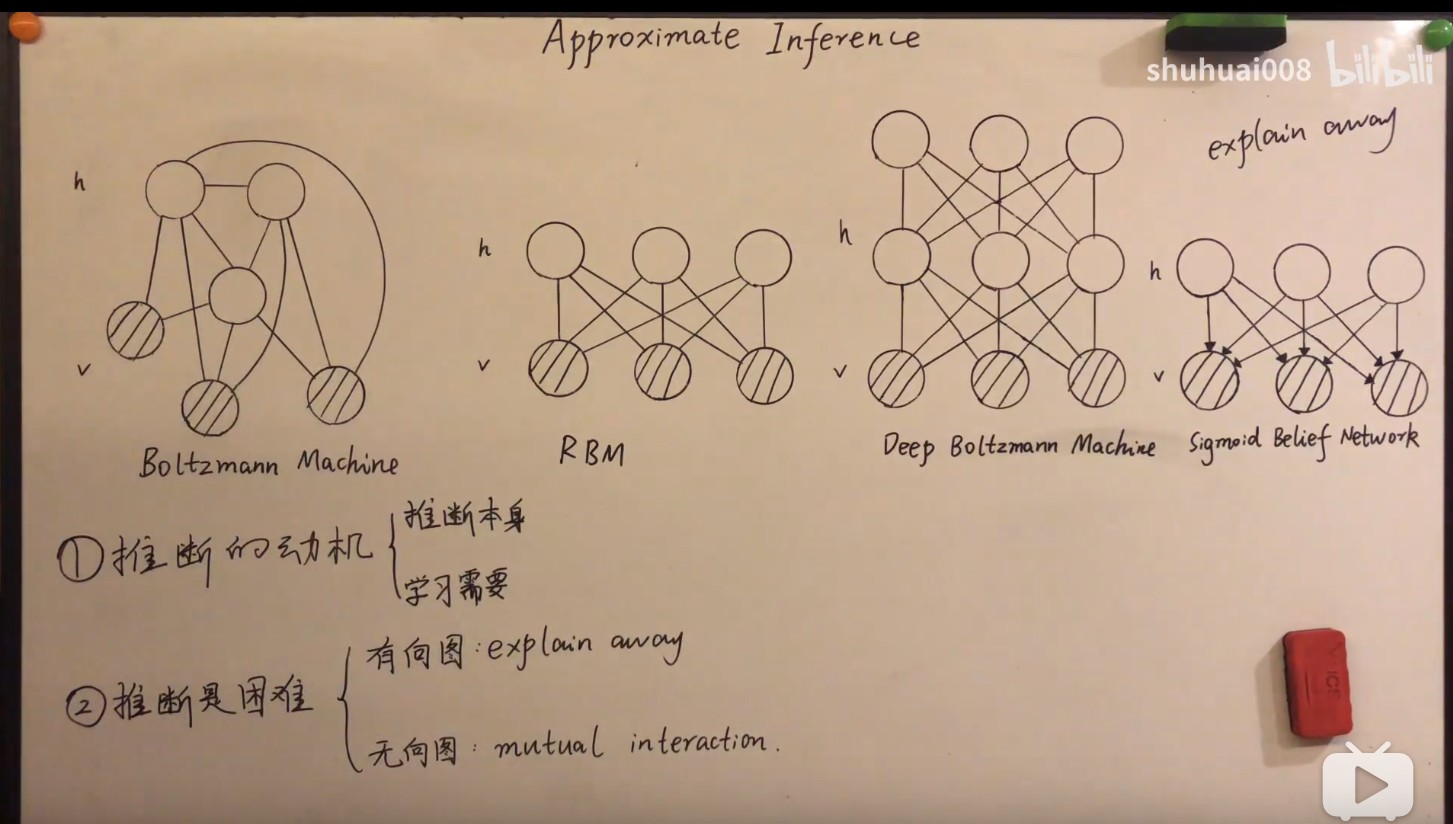 Approximate Inference
shuhuai008 bilibili
explain away
h
h
h
h
v
v
v
v
Boltzmann Machine
RBM
Deep Boltzmann Machine
Sigmoid Belief Network
①推断的动机
推断本身
学习需要
②推断是困难
有向图:explain away
无向图:mutual interaction.